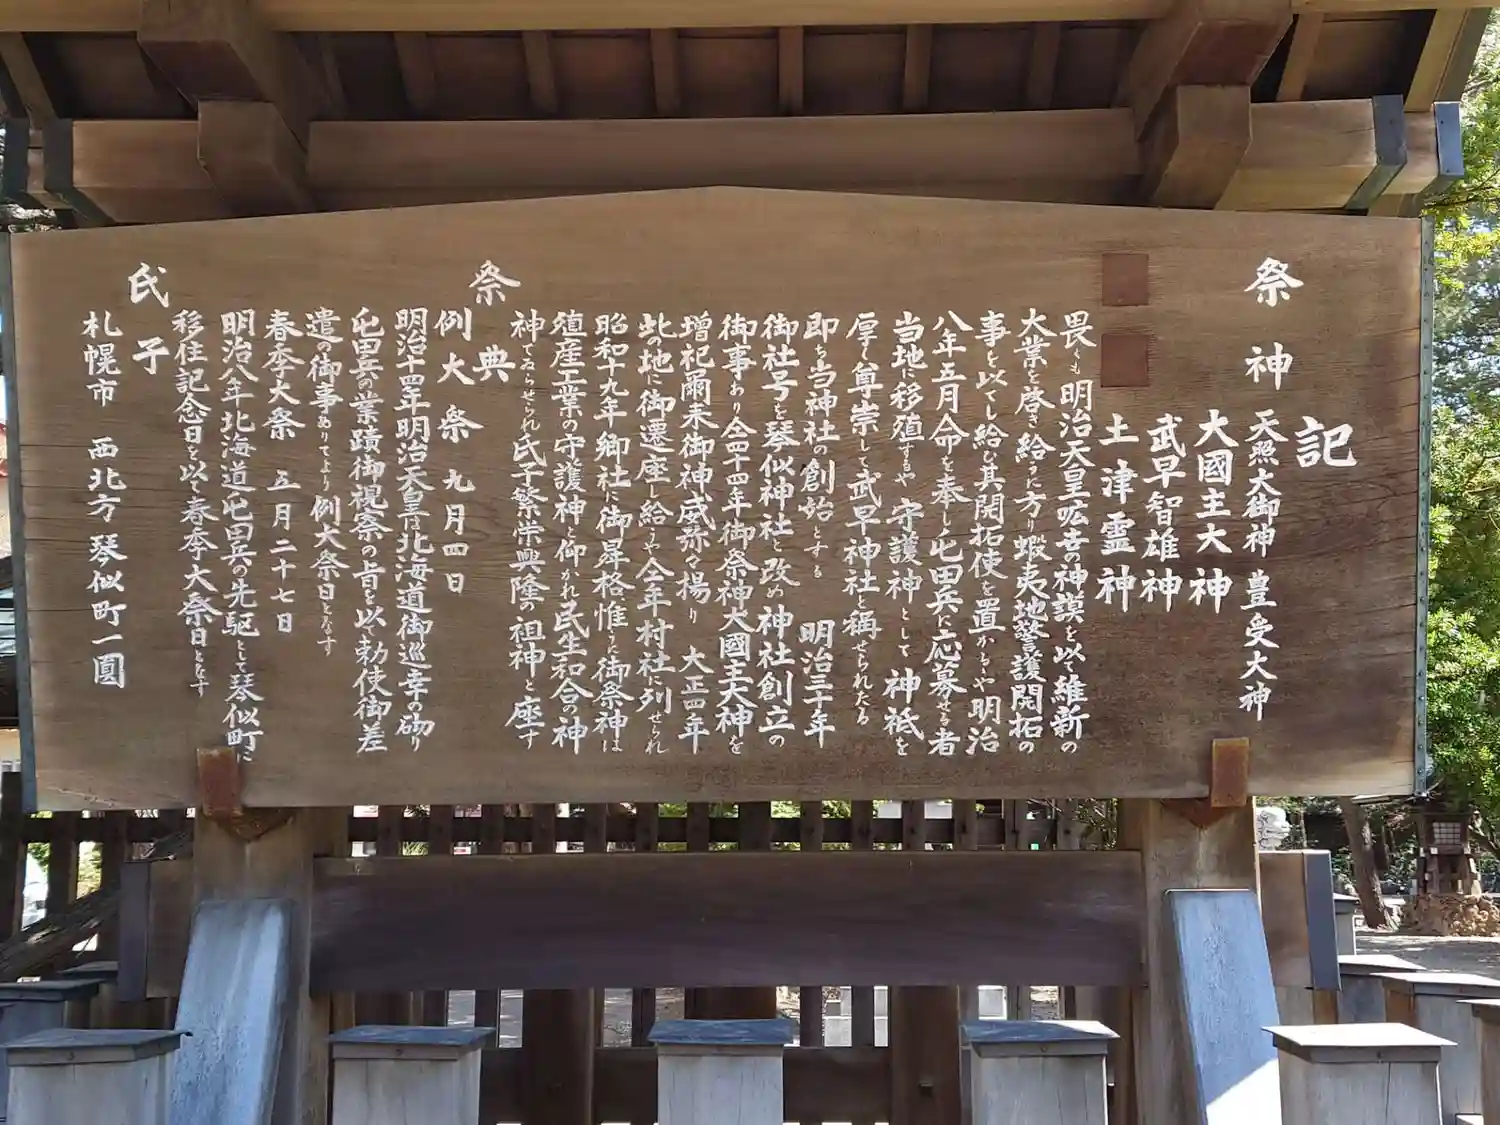 記
祭神 天照大御神 豊受大神
大國主大神
武早智雄神
土津霊神
畏くも明治天皇宏遠の神謨を以て維新の
大業を啓き給うに方り蝦夷地警護開拓の
事を以てし給ひ其開拓使を置かるや明治
八年五月命を奉し屯田兵に応募せる者
当地に移殖するや守護神として神祇を
厚く尊崇して武早神社と稱せられたる
即ち当神社の創始とする 明治三十年
御社号を琴似神社と改め神社創立の
御事あり仝四十四年御祭神大國主大神を
增祀爾来御神威弥々揚り 大正四年
此の地に御遷座し給うや仝年村社に列せられ
昭和十九年郷社に御昇格惟うに御祭神は
殖産工業の守護神と仰かれ民生和合の神
神てゐらせられ氏子繁栄興隆の祖神と座す
祭典
例大祭 九月四日
明治十四年明治天皇は北海道御巡幸の砌り
屯田兵の業蹟御視察の旨を以て勅使御差
遣の御事ありてより例大祭日となす
春季大祭 五月二十七日
明治八年北海道屯田兵の先駆として琴似町に
移住記念日を以て春季大祭日となす
氏子
札幌市 西北方 琴似町一圓